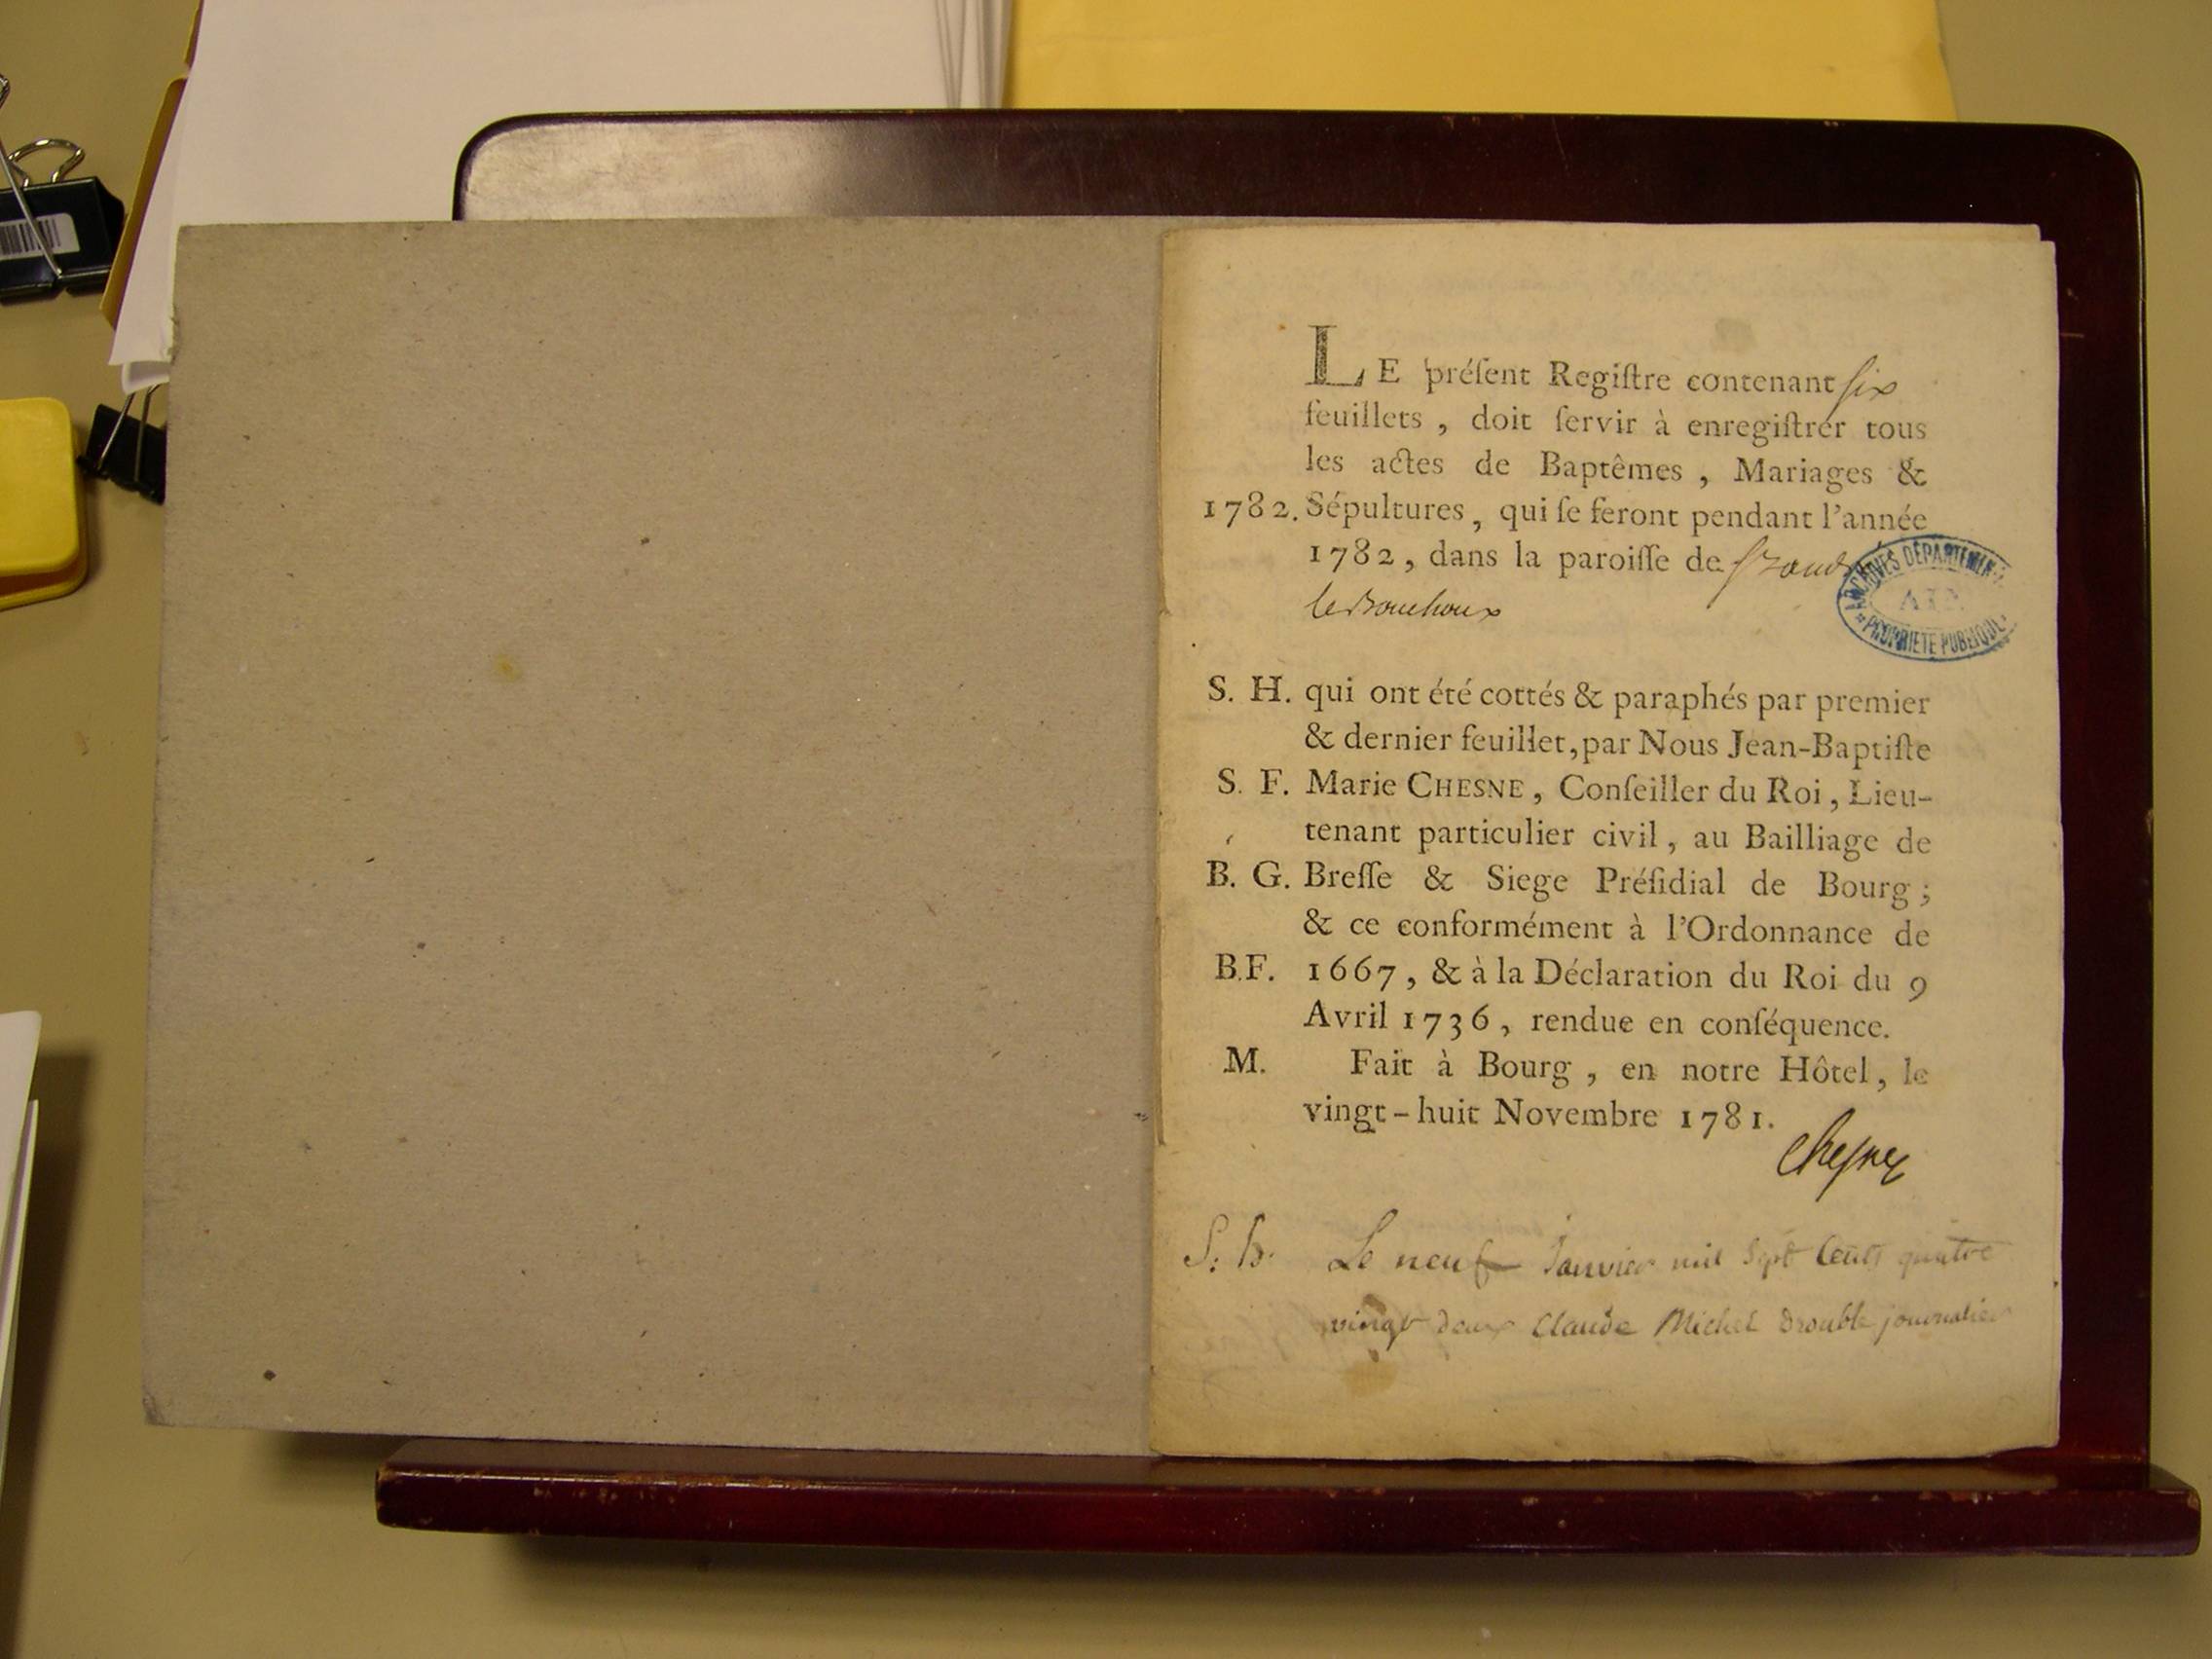 LE préſent Regiſtre contenant six
feuillets , doit ſervir à enregiſtrer tous
les actes de Baptêmes , Mariages &
1782. Sépultures , qui ſe feront pendant l'année
1782 , dans la paroiſſe de
le Bouchoux
ARCHIVES DÉPARTEMENT
AIN
PROPRIETE PUBLIQUE
S. H. qui ont été cottés & paraphés par premier
& dernier feuillet, par Nous Jean-Baptiſte
S. F. Marie CHESNE , Conſeiller du Roi , Lieu-
tenant particulier civil , au Bailliage de
B. G. Breſſe & Siege Préſidial de Bourg ;
& ce conformément à l'Ordonnance de
B.F. 1667 , & à la Déclaration du Roi du 9
Avril 1736 , rendue en conſéquence.
M. Fait à Bourg , en notre Hôtel, le
vingt-huit Novembre 1781.
Chesne
S. h. Le neuf Janvier mil Sept Cents quatre
vingt deux Claude Michel drouble journalier